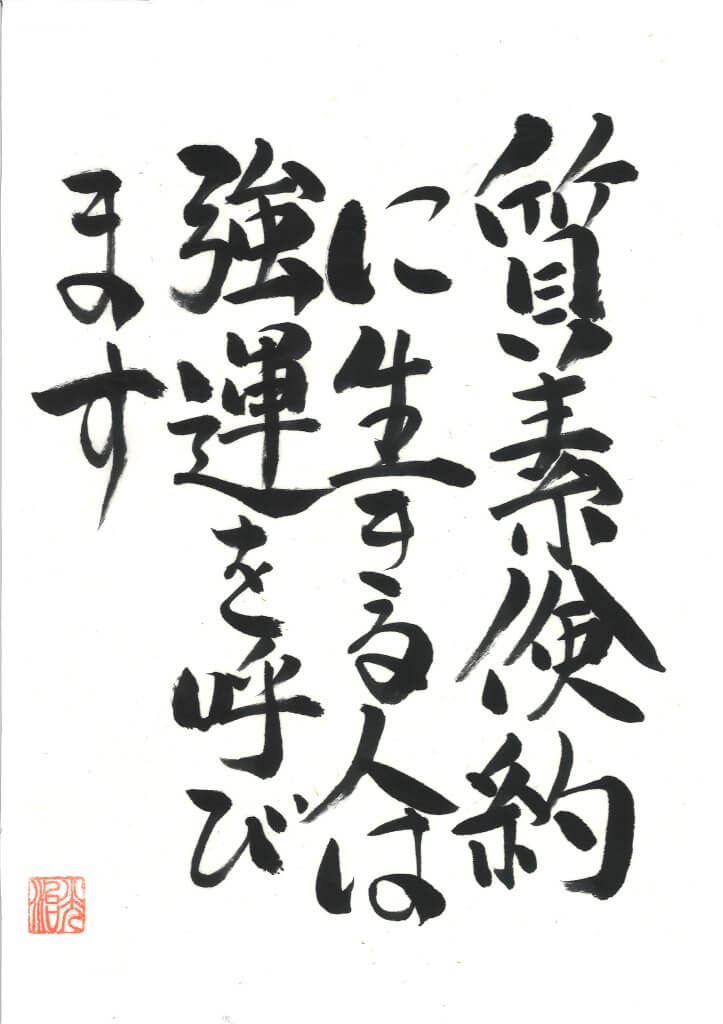 質素倹約
に生きる人は
強運を呼び
ます